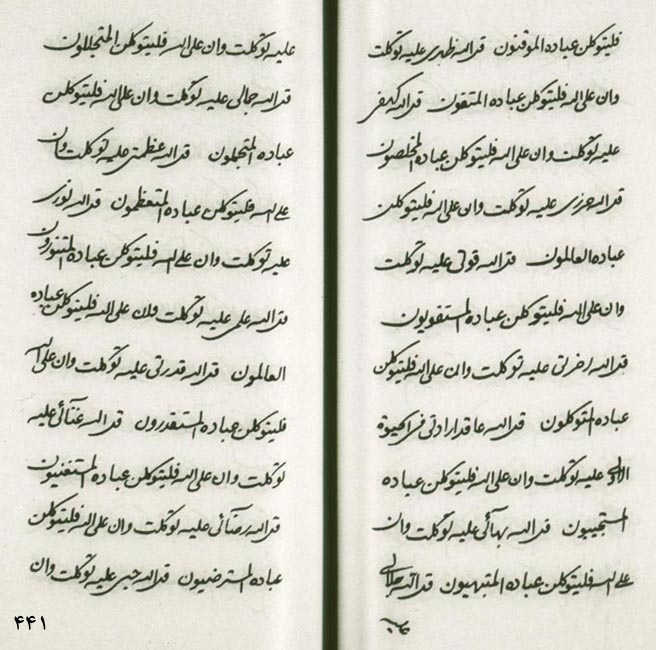 فليتوكلن عباده الموقنون قل الله ظهري عليه توكلت
وان على الله فليتوكلن عباده المتقون قل الله كهفي
عليه توكلت وان على الله فليتوكلن عباده المخلصون
قل الله حرزي عليه توكلت وان على الله فليتوكلن
عباده العالمون قل الله قوتي عليه توكلت
وان على الله فليتوكلن عباده المستقويون
قل الله عليه توكلت وان على الله فليتوكلن
عباده المتوكلون قل الله في الحيوة
عليه توكلت وان على الله فليتوكلن عباده
المستجيبون قل الله بهائي عليه توكلت وان
على الله فليتوكلن عباده المتبهيون قل الله جلالي
عليه
عليه توكلت وان على الله فليتوكلن المتجللون
قل الله جمالي عليه توكلت وان على الله فليتوكلن
عباده المتجملون قل الله عظمتي عليه توكلت وان
على الله فليتوكلن عباده المتعظمون قل الله نوري
عليه توكلت وان على الله فليتوكلن عباده المتنورون
قل الله علمي عليه توكلت وان على الله فليتوكلن عباده
العالمون قل الله قدرتي عليه توكلت وان على الله
فليتوكلن عباده المستقدرون قل الله غنائي عليه
توكلت وان على الله فليتوكلن عباده المستغنيون
قل الله رضائي عليه توكلت وان على الله فليتوكلن
عباده المسترضيون قل الله حبي عليه توكلت وان
۴۴۱